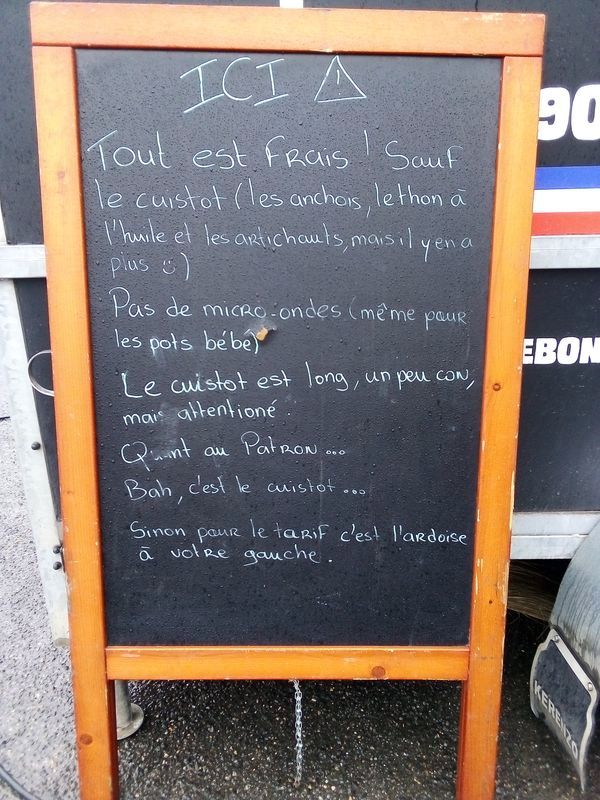 ICI ⚠
Tout est frais ! Sauf
le cuistot (les anchois, le thon à
l'huile et les artichauts, mais il y en a
plus ☺)
Pas de micro-ondes (même pour
les pots bébé)
Le cuistot est long, un peu con,
mais attentioné.
Quant au Patron...
Bah, c'est le cuistot...
Sinon pour le tarif c'est l'ardoise
à votre gauche.
90
EBON
KERENZO